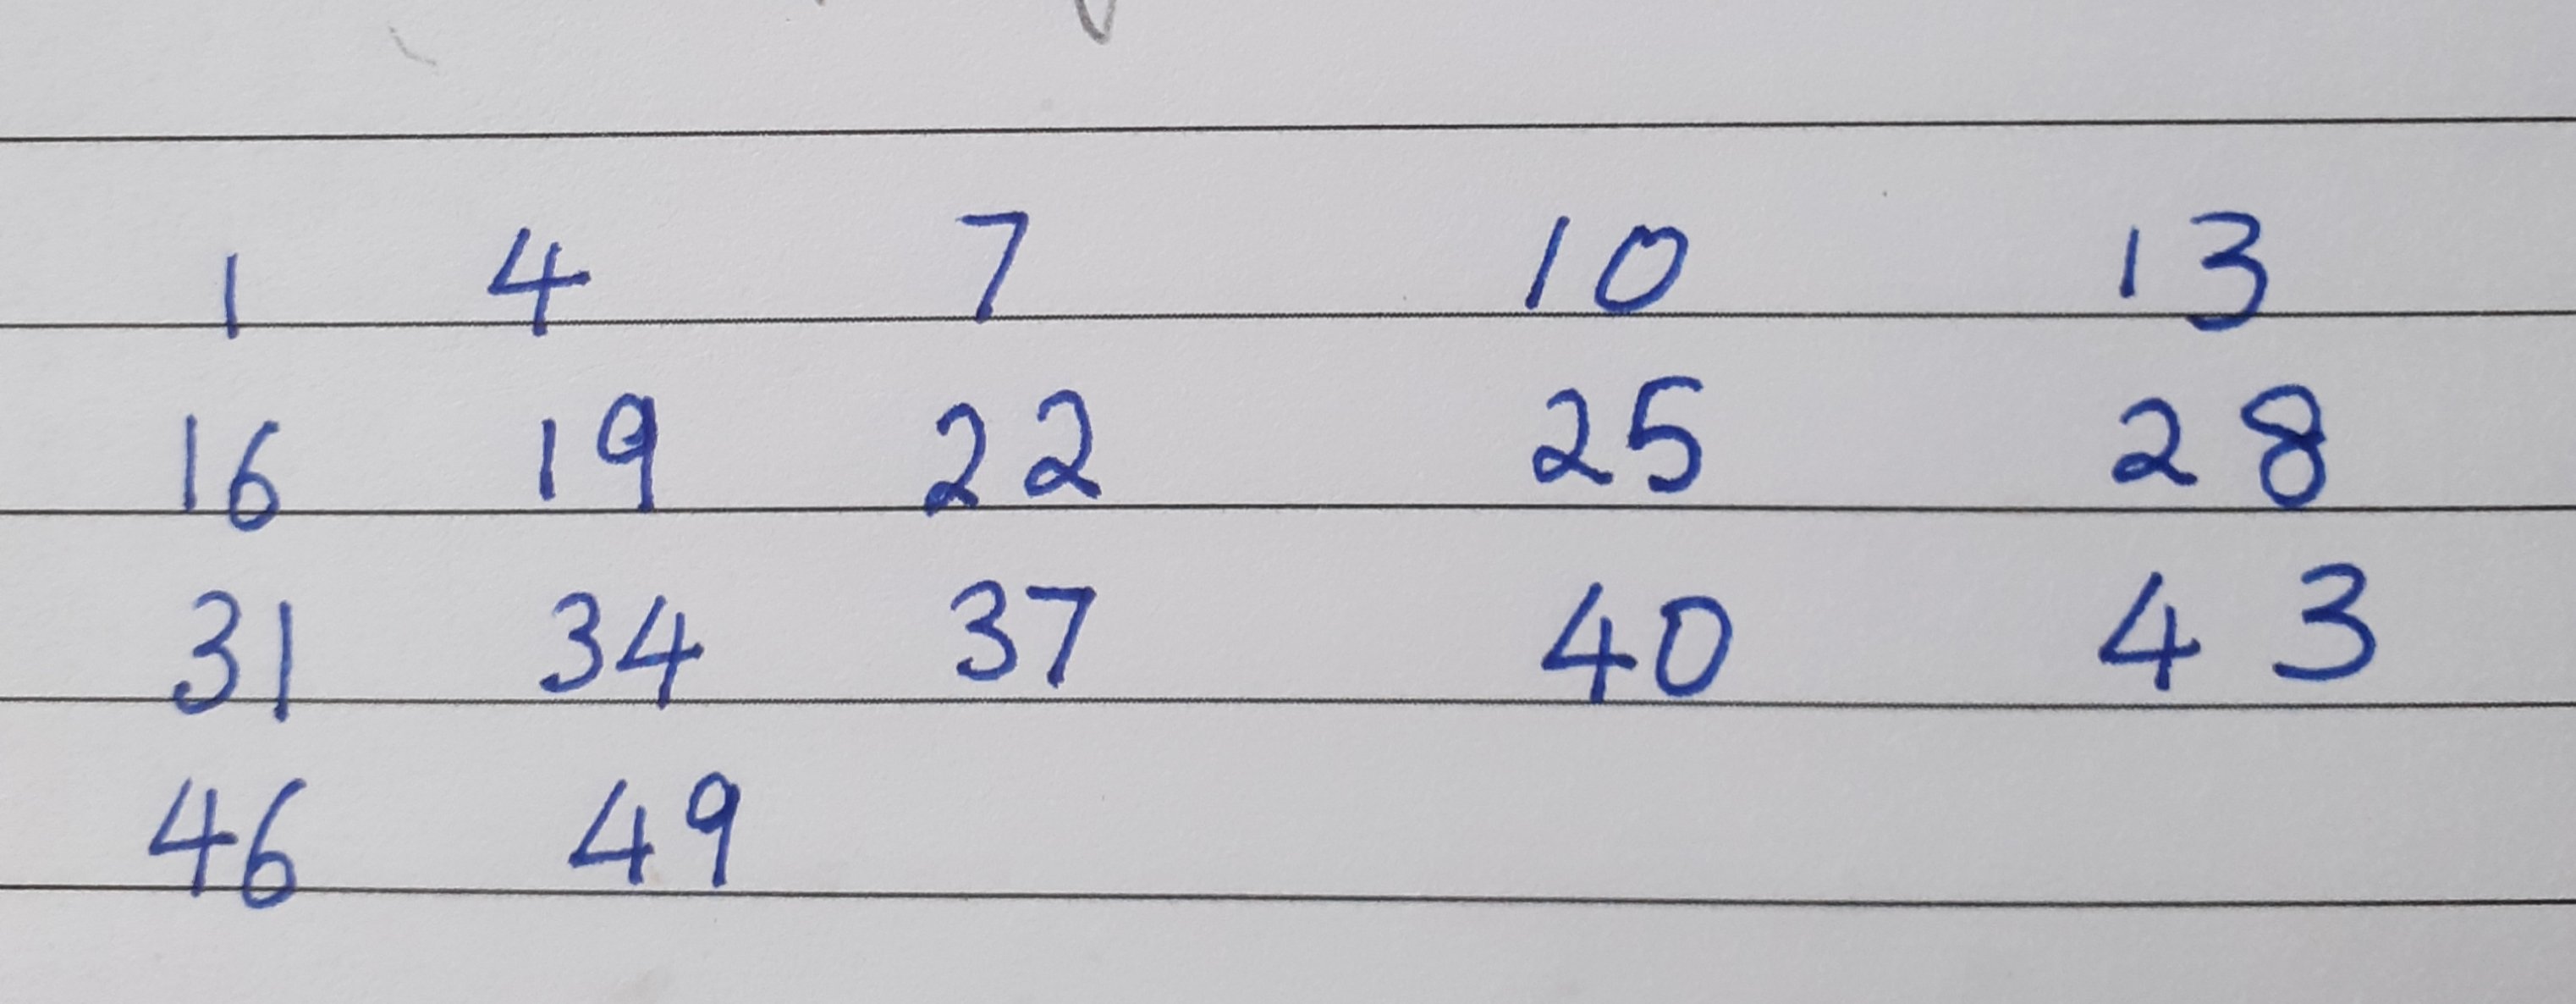 1 4 7 10 13
16 19 22 25 28
31 34 37 40 43
46 49